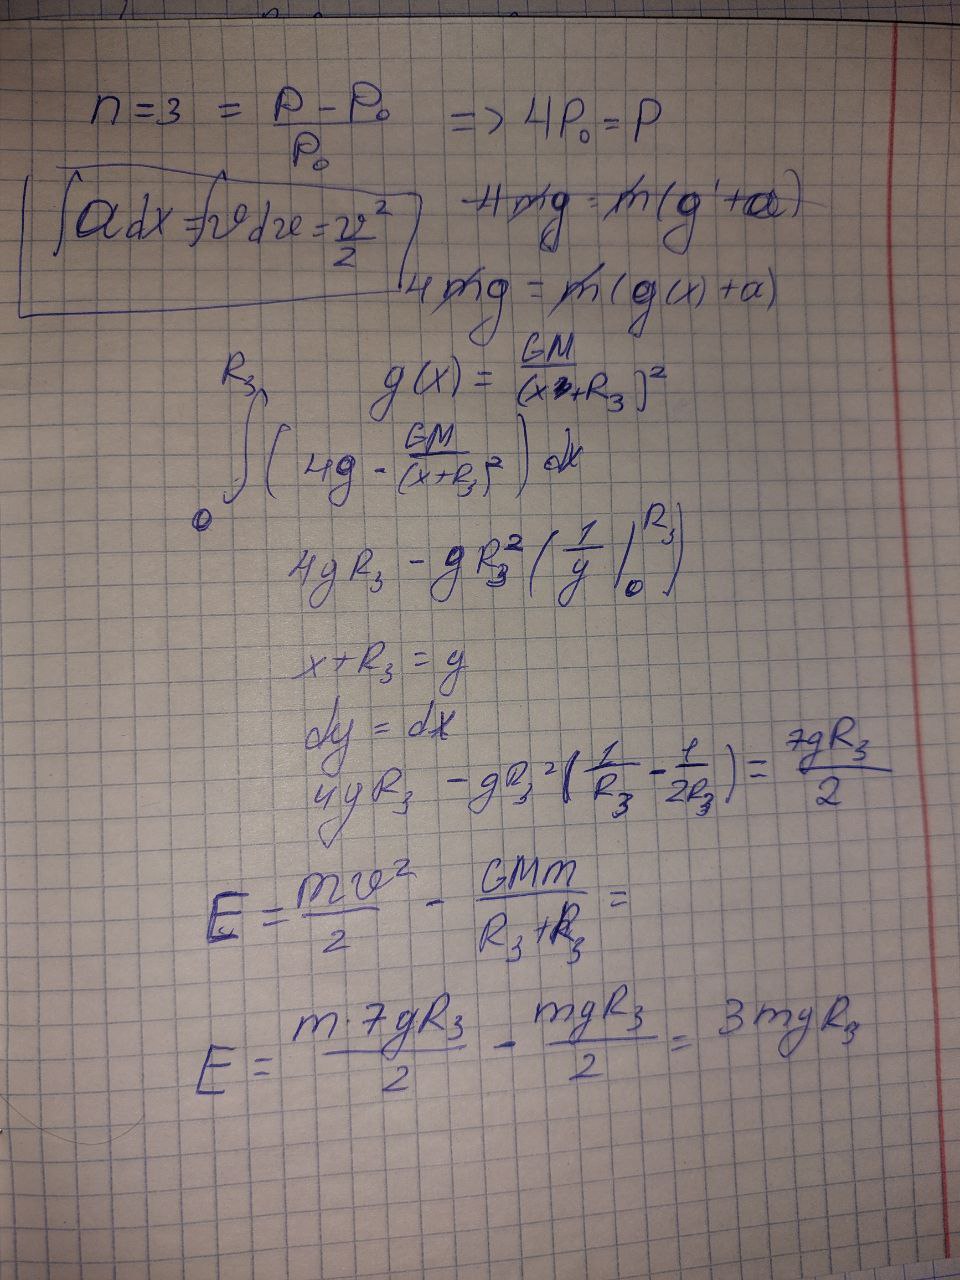 n = 3 = (P - P₀)/P₀ => 4P₀ = P
∫a dx = ∫v dv = v²/2
4mg = m(g' + a)
4mg = m(g(x) + a)
g(x) = GM/(x + R₃)²
∫₀^R₃ (4g - GM/(x+R₃)²) dx
4gR₃ - gR₃² (1/y |₀^R₃)
x + R₃ = y
dy = dx
4gR₃ - gR₃² (1/R₃ - 1/2R₃) = 7gR₃/2
E = mv²/2 - GMm/(R₃ + R₃) =
E = m·7gR₃/2 - mgR₃/2 = 3mgR₃